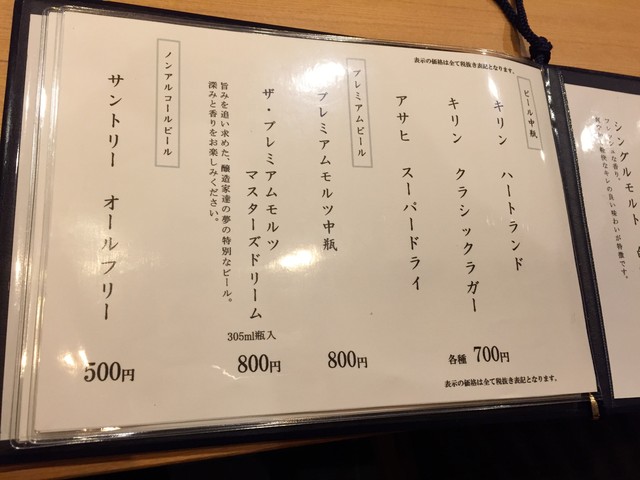 表示の価格は全て税抜き表記となります。
ビール中瓶
キリン ハートランド
キリン クラシックラガー
アサヒ スーパードライ
各種 700円
プレミアムビール
プレミアムモルツ中瓶
800円
ザ・プレミアムモルツ
マスターズドリーム
305ml瓶入
800円
旨みを追い求めた、醸造家達の夢の特別なビール。
深みと香りをお楽しみください。
ノンアルコールビール
サントリー オールフリー
500円
表示の価格は全て税抜き表記となります。
シングルモルト
フレッシュな香り、
キレの良い味わいが特徴です。